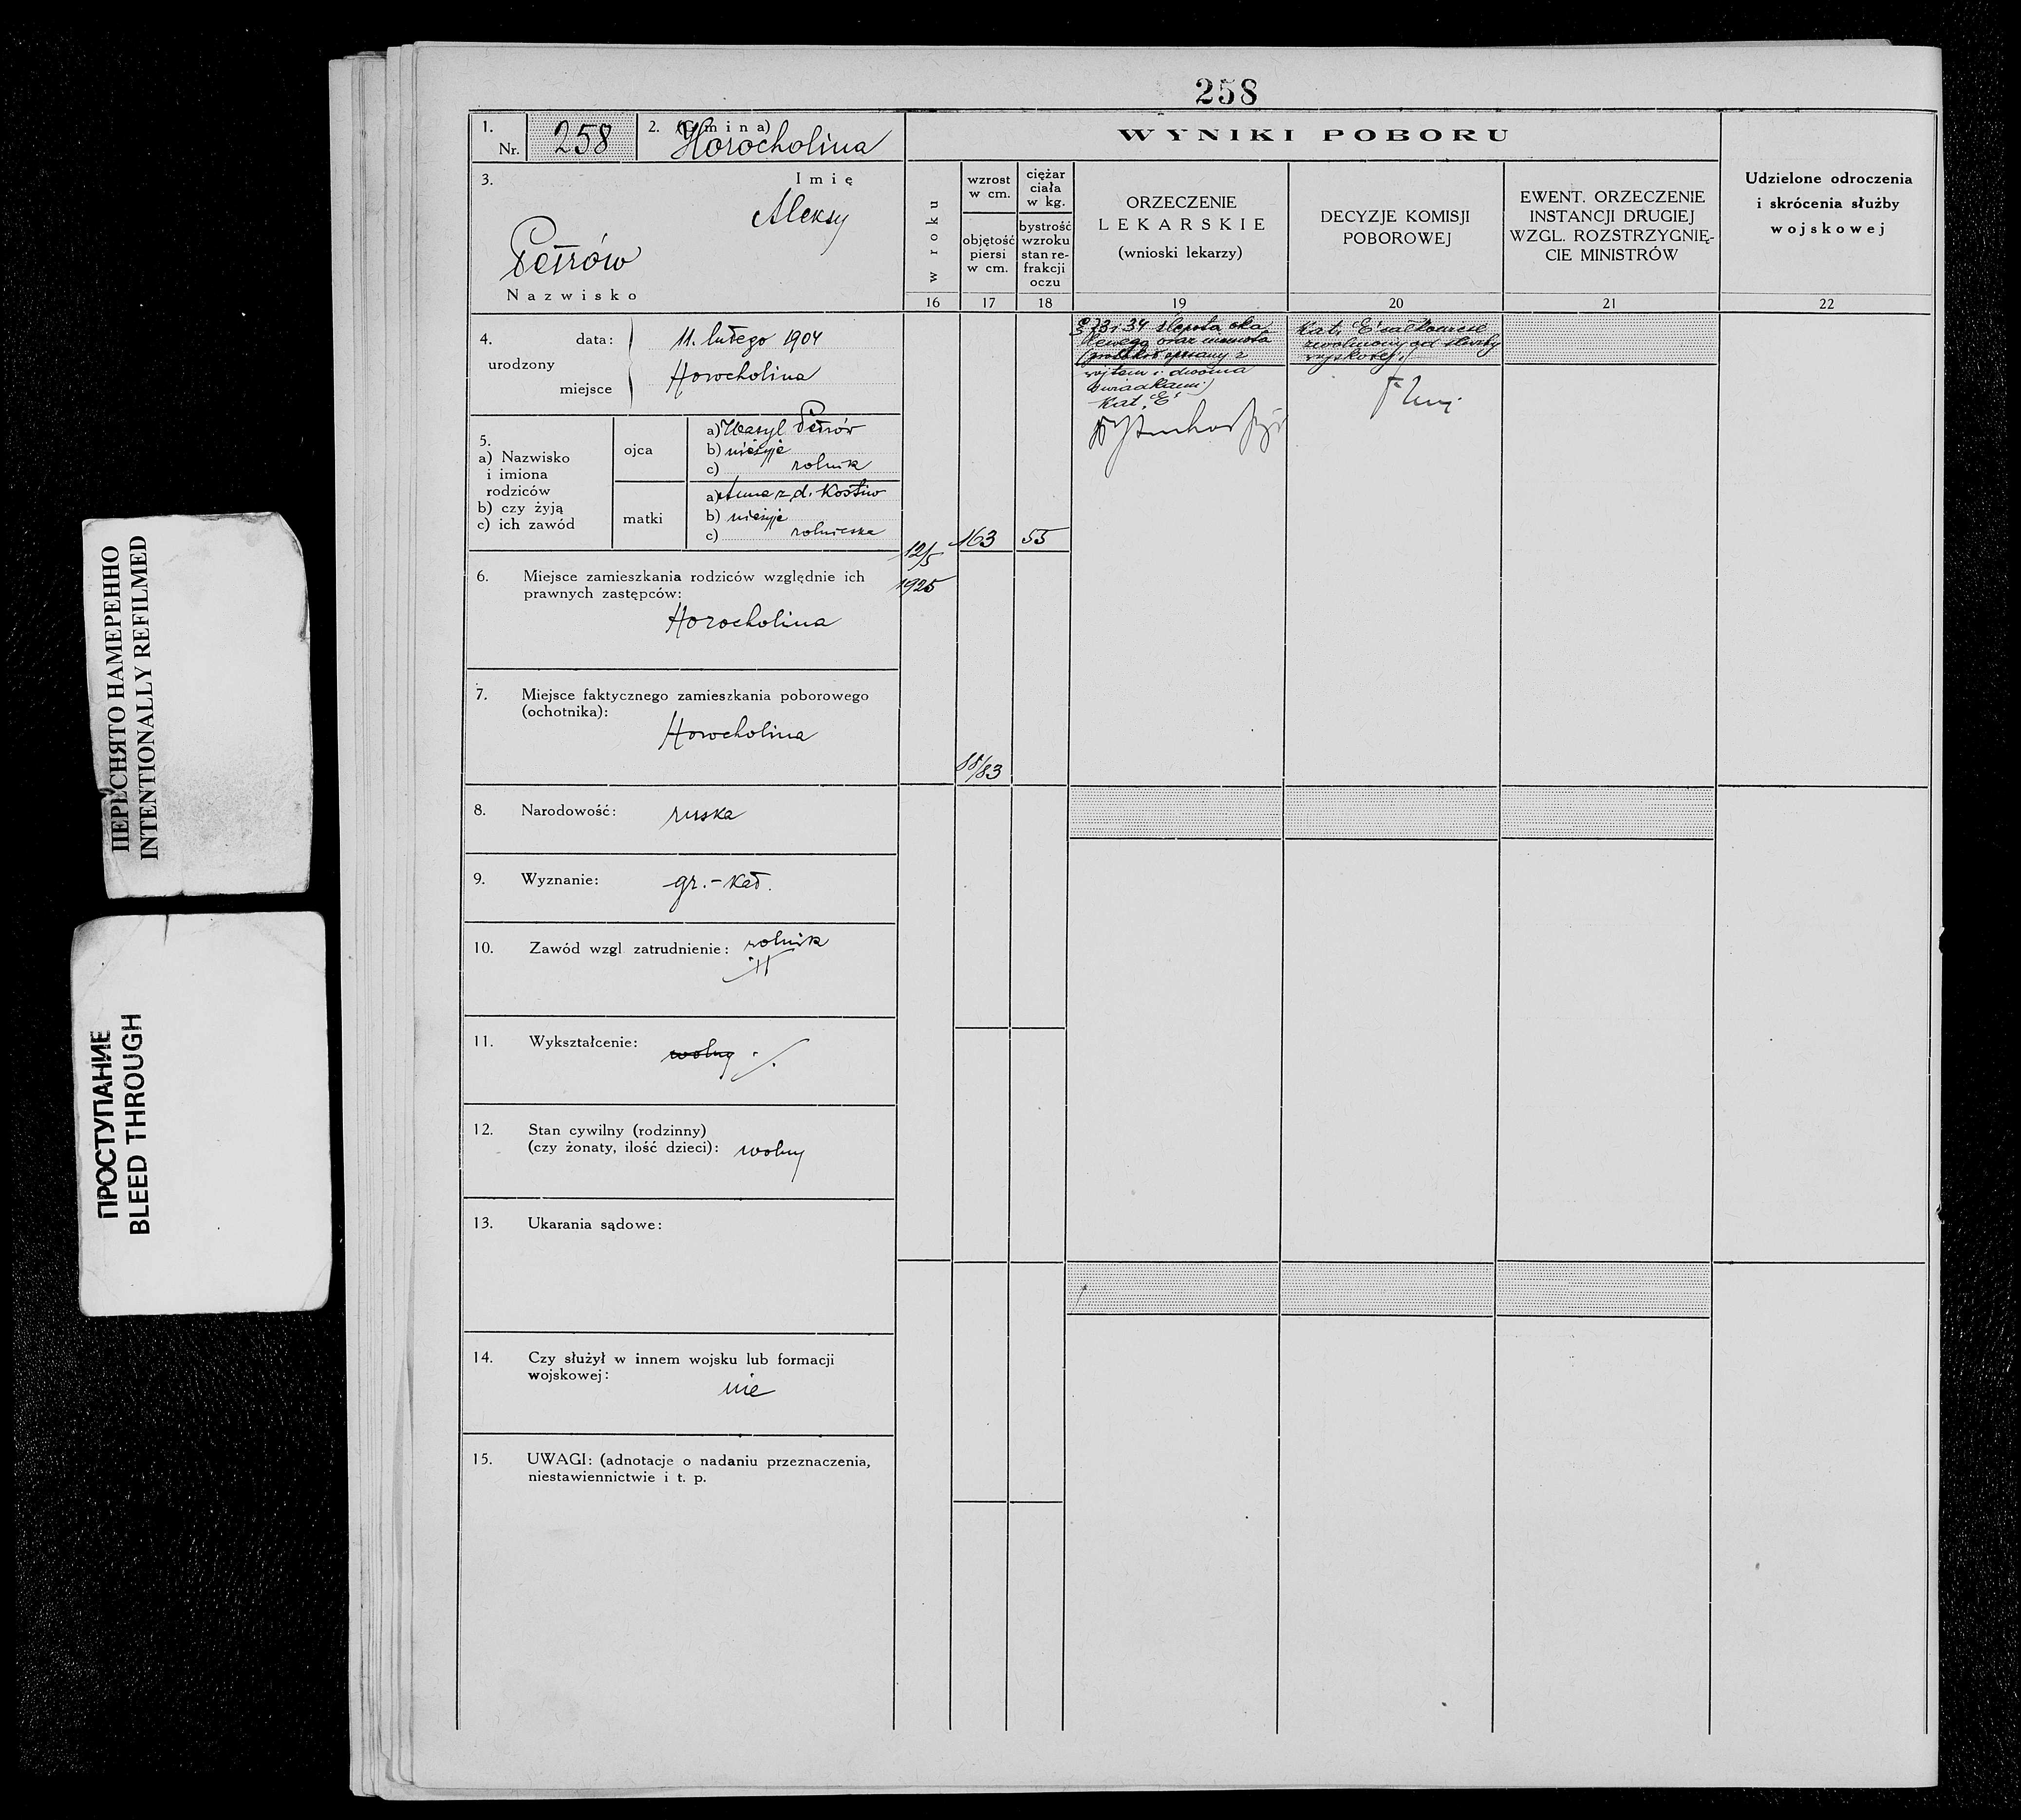 258
1.
Nr. 258
2. (Gmina)
Horocholina
WYNIKI POBORU
Udzielone odroczenia
i skrócenia służby
wojskowej
3.
Imię
Aleksy
Petrów
Nazwisko
w roku
wzrost
w cm.
objętość
piersi
w cm.
ciężar
ciała
w kg.
bystrość
wzroku
stan re-
frakcji
oczu
ORZECZENIE
LEKARSKIE
(wnioski lekarzy)
DECYZJE KOMISJI
POBOROWEJ
EWENT. ORZECZENIE
INSTANCJI DRUGIEJ
WZGL. ROZSTRZYGNIĘ-
CIE MINISTRÓW
16 17 18 19 20 21 22
4.
urodzony
data: 11. lutego 1904
miejsce Horocholina
5.
a) Nazwisko
i imiona
rodziców
b) czy żyją
c) ich zawód
ojca
a) Wasyl Petrów
b) nieżyje
c) rolnik
matki
a) Anna z d. Kostiw
b) nieżyje
c) rolniczka
12/5
1925
163
55
88/83
§ 73 i 34 ślepota oka
lewego oraz niemota
(protokół spisany z
wójtem i dwoma
świadkami)
Kat. "E"
Kat. "E" całkowicie
zwolniony od służby
wojskowej
6. Miejsce zamieszkania rodziców względnie ich
prawnych zastępców:
Horocholina
7. Miejsce faktycznego zamieszkania poborowego
(ochotnika):
Horocholina
8. Narodowość: ruska
9. Wyznanie: gr.-kat.
10. Zawód wzgl. zatrudnienie: rolnik
11. Wykształcenie: wolny ./.
12. Stan cywilny (rodzinny)
(czy żonaty, ilość dzieci): wolny
13. Ukarania sądowe:
14. Czy służył w innem wojsku lub formacji
wojskowej:
nie
15. UWAGI: (adnotacje o nadaniu przeznaczenia,
niestawiennictwie i t. p.
ПЕРЕСНЯТО НАМЕРЕННО
INTENTIONALLY REFILMED
ПРОСТУПАНИЕ
BLEED THROUGH